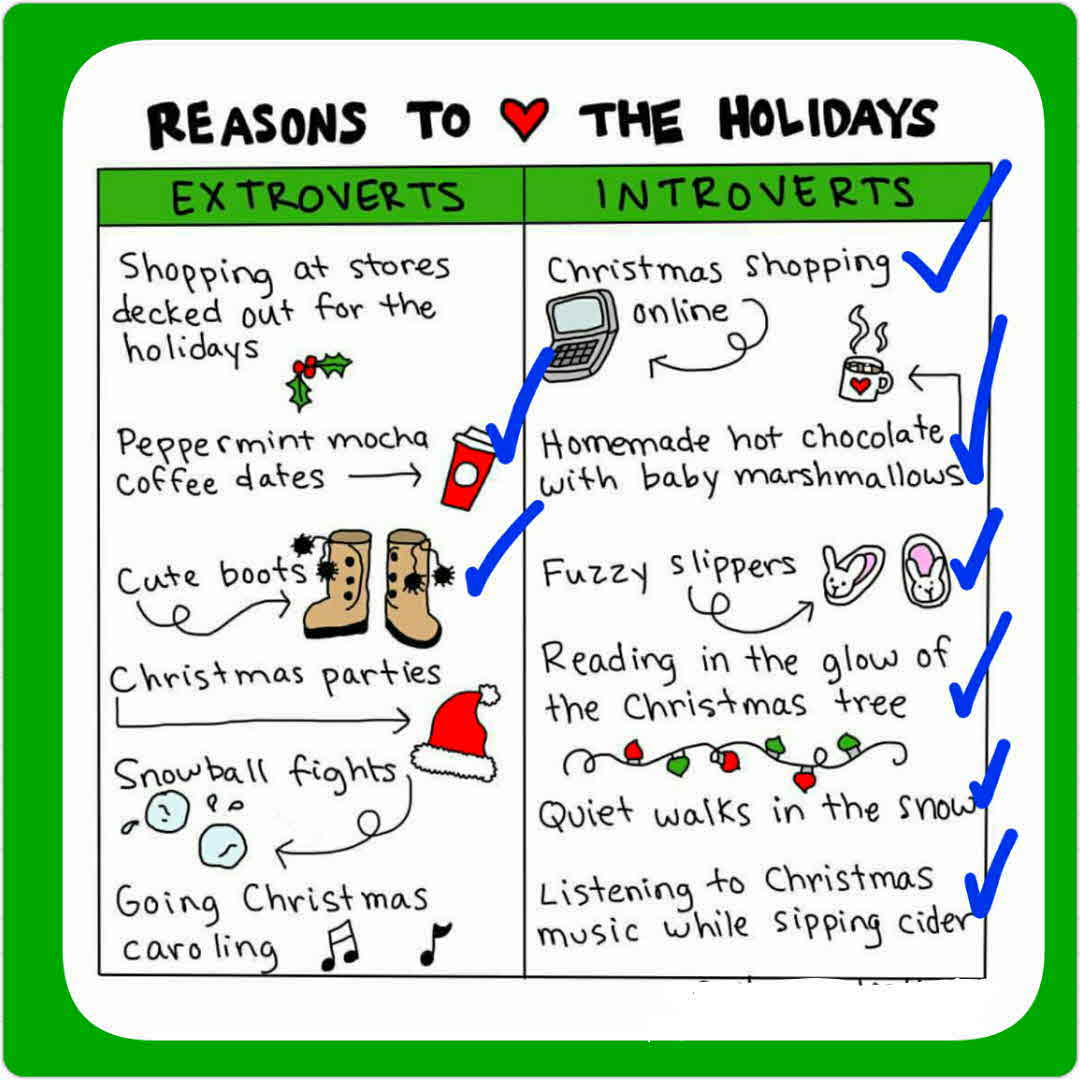 REASONS TO ❤ THE HOLIDAYS
EXTROVERTS
Shopping at stores
decked out for the
holidays
Peppermint mocha
coffee dates
Cute boots
Christmas parties
Snowball fights
Going Christmas
caroling
INTROVERTS
Christmas shopping
online
Homemade hot chocolate
with baby marshmallows
Fuzzy slippers
Reading in the glow of
the Christmas tree
Quiet walks in the snow
Listening to Christmas
music while sipping cider